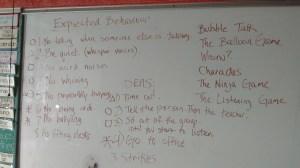 Expected Behaviour
1) No talking when someone else is talking
2) Be quiet (whisper voices)
3) No weird noises
4) No whining
5) No inappropriate
6) No
7) No bullying
8 No
IDEAS:
1) Time out.
2) Tell the person then the teacher.
3) Sit out of the group
until you start to listen
4) Go to office
3 strikes
Bubble Talk
The Balloon Game
Charades
The Ninja Game
The Listening Game